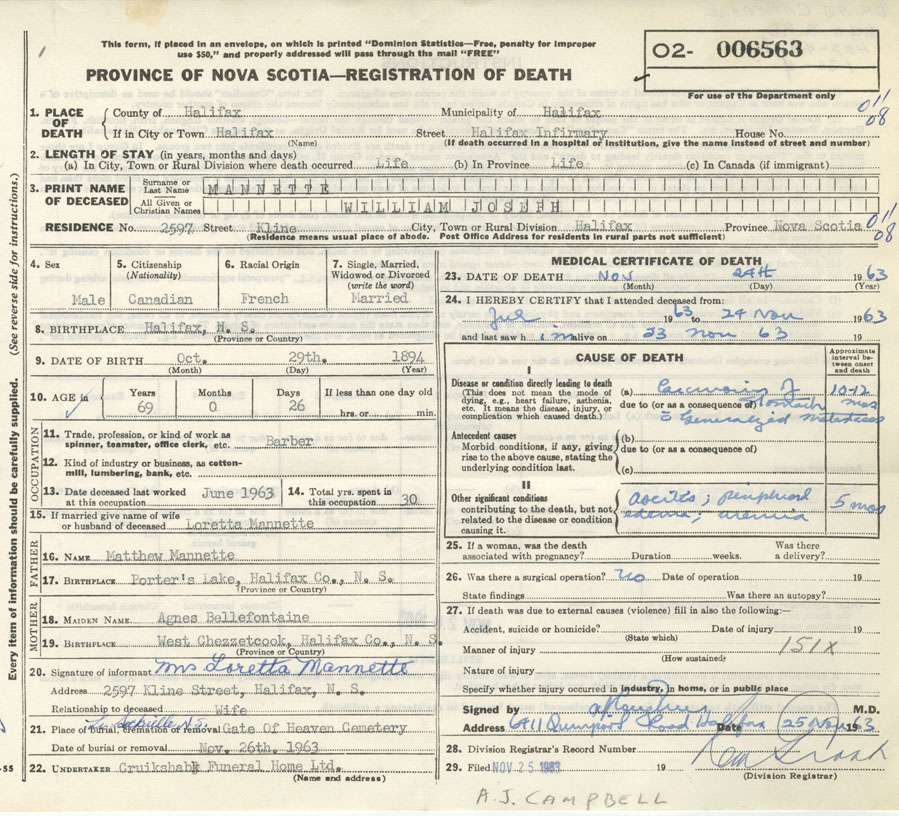 This form, if placed in an envelope, on which is printed "Dominion Statistics—Free, penalty for improper
use $50," and properly addressed will pass through the mail "FREE"
PROVINCE OF NOVA SCOTIA—REGISTRATION OF DEATH
O2- 006563
For use of the Department only
1. PLACE OF DEATH
County of Halifax Municipality of Halifax 011/08
If in City or Town Halifax Street Halifax Infirmary House No.
(Name) (If death occurred in a hospital or institution, give the name instead of street and number)
2. LENGTH OF STAY (in years, months and days)
(a) In City, Town or Rural Division where death occurred Life (b) In Province Life (c) In Canada (if immigrant)
3. PRINT NAME OF DECEASED
Surname or Last Name MANNETTE
All Given or Christian Names WILLIAM JOSEPH
RESIDENCE No. 2597 Street Kline City, Town or Rural Division Halifax Province Nova Scotia 011/08
(Residence means usual place of abode. Post Office Address for residents in rural parts not sufficient)
4. Sex Male
5. Citizenship (Nationality) Canadian
6. Racial Origin French
7. Single, Married, Widowed or Divorced (write the word) Married
8. BIRTHPLACE Halifax, N. S.
(Province or Country)
9. DATE OF BIRTH Oct. 29th. 1894
(Month) (Day) (Year)
10. AGE in Years 69 Months 0 Days 26 If less than one day old hrs. or min.
OCCUPATION
11. Trade, profession, or kind of work as spinner, teamster, office clerk, etc. Barber
12. Kind of industry or business, as cotton-mill, lumbering, bank, etc.
13. Date deceased last worked at this occupation June 1963
14. Total yrs. spent in this occupation 30
15. If married give name of wife or husband of deceased Loretta Mannette
FATHER
16. NAME Matthew Mannette
17. BIRTHPLACE Porter's Lake, Halifax Co., N. S.
(Province or Country)
MOTHER
18. MAIDEN NAME Agnes Bellefontaine
19. BIRTHPLACE West Chezzetcook, Halifax Co., N. S.
(Province or Country)
20. Signature of informant Mrs Loretta Mannette
Address 2597 Kline Street, Halifax, N. S.
Relationship to deceased Wife
Sackville N.S.
21. Place of burial, cremation or removal Gate Of Heaven Cemetery
Date of burial or removal Nov. 26th. 1963
22. UNDERTAKER Cruikshank Funeral Home Ltd.
(Name and address)
(See reverse side for instructions.)
Every item of information should be carefully supplied.
-55
MEDICAL CERTIFICATE OF DEATH
23. DATE OF DEATH Nov 24th 1963
(Month) (Day) (Year)
24. I HEREBY CERTIFY that I attended deceased from:
Jul 1963 to 24 Nov 1963
and last saw him alive on 23 Nov 63
CAUSE OF DEATH
Approximate interval between onset and death
I
Disease or condition directly leading to death
(This does not mean the mode of dying, e.g., heart failure, asthenia, etc. It means the disease, injury, or complication which caused death.)
(a) Carcinoma of Stomach 10-12 mos
due to (or as a consequence of)
Generalized metastases
Antecedent causes
Morbid conditions, if any, giving rise to the above cause, stating the underlying condition last.
(b)
due to (or as a consequence of)
(c)
II
Other significant conditions
contributing to the death, but not related to the disease or condition causing it.
ascites; peripheral edema; uremia 5 mos
25. If a woman, was the death associated with pregnancy? Duration weeks. Was there a delivery?
26. Was there a surgical operation? No Date of operation 19
State findings Was there an autopsy?
27. If death was due to external causes (violence) fill in also the following:—
Accident, suicide or homicide? Date of injury 19
(State which)
Manner of injury 151X
(How sustained)
Nature of injury
Specify whether injury occurred in industry, in home, or in public place
Signed by M.D.
Address 6411 Quinpool Road Halifax Date 25 Nov 1963
28. Division Registrar's Record Number
29. Filed NOV 25 1963 19
(Division Registrar)
A.J. CAMPBELL